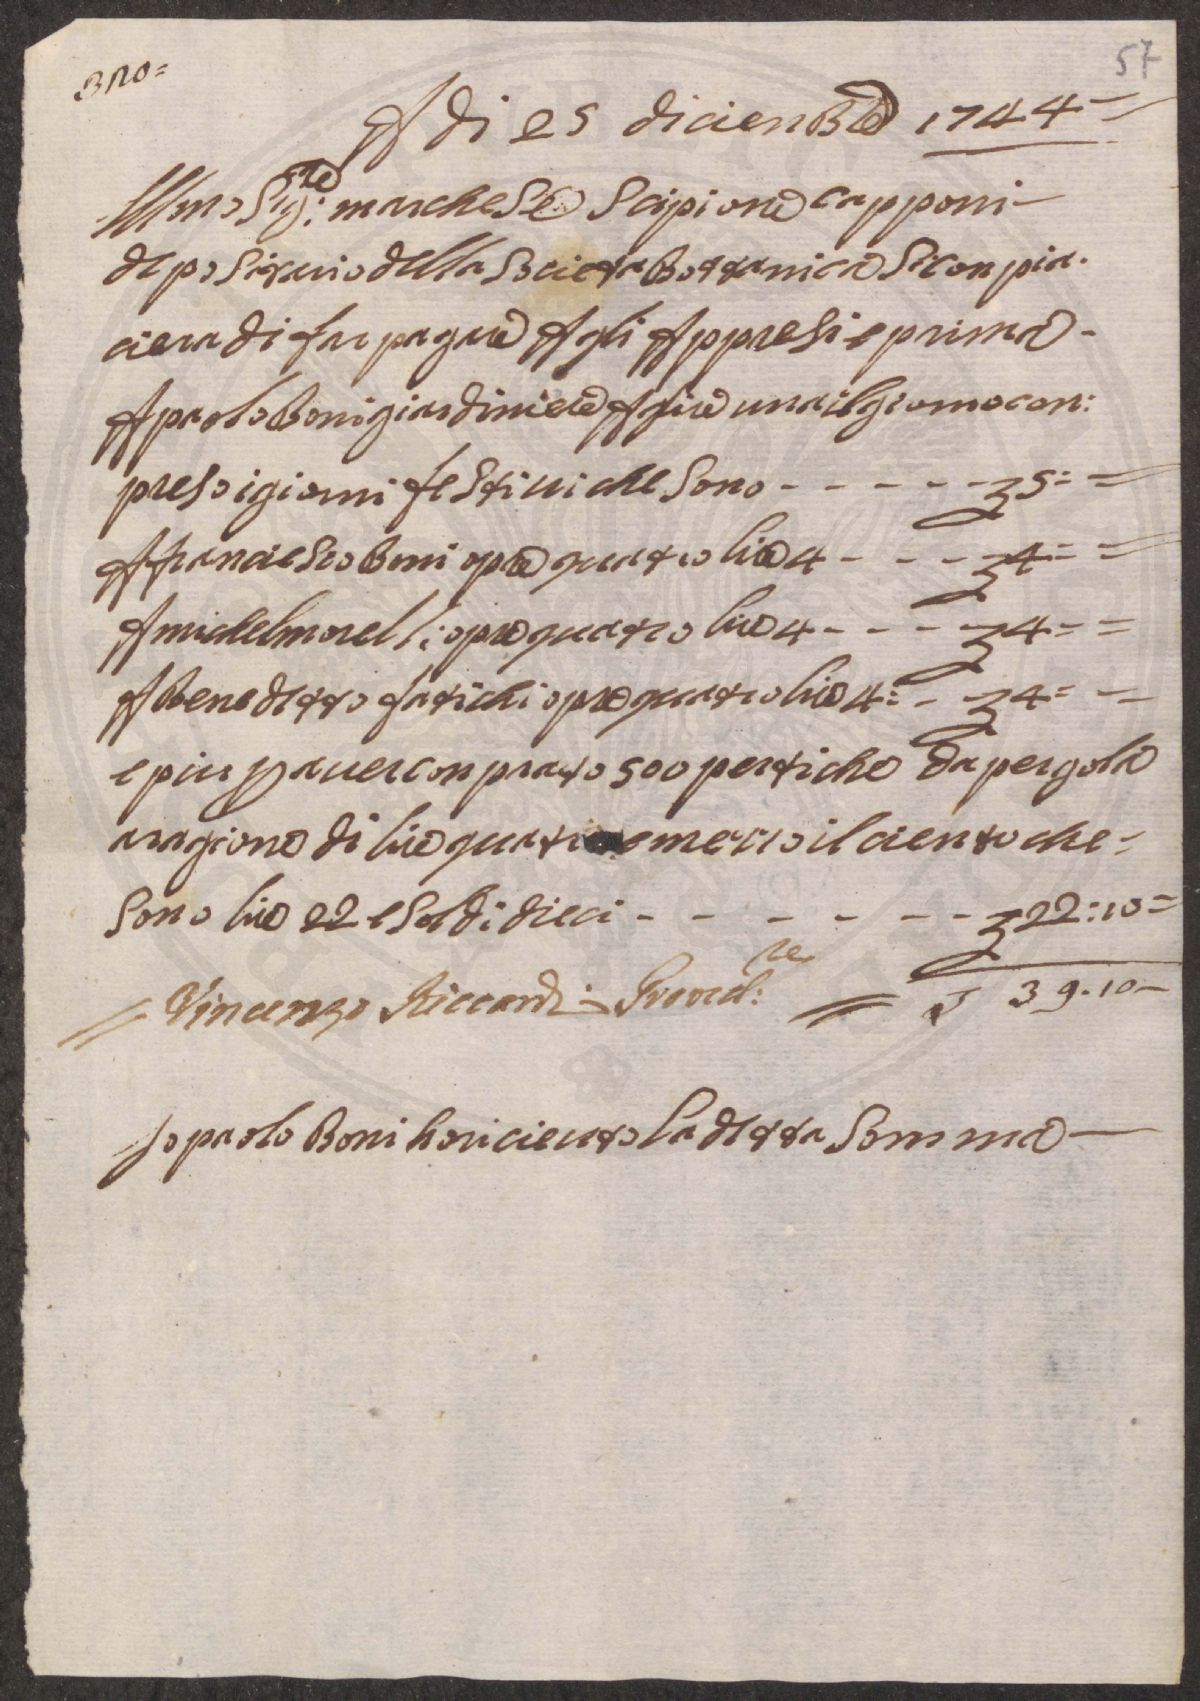 57
A di 25 dicienbre 1744
Illmo Sig:re marchese Scipione capponi
depositario della Societa Bottanica Si conpia.
ciera di far pagare Agli Appresi e prima
A paolo Boni giardiniere A lire una il giorno con:
preso i giorni festivi che Sono - - - - - £ 5:
A franciesco Boni opre quatro lire 4 - - - - £ 4
A michel morelli: opre quatro lire 4 - - - - £ 4
A benedetto fatichi opre quatro lire 4: - - £ 4
e piu p aver conprato 500 pertiche da pergola
aragione di lire quatro e mezzo il ciento che
Sono lire 22 e Soldi dieci - - - - - - £ 22:10
Vincenzo Riccardi Proved:re £ 39.10
Io paolo Boni ho riciuto la detta Somma